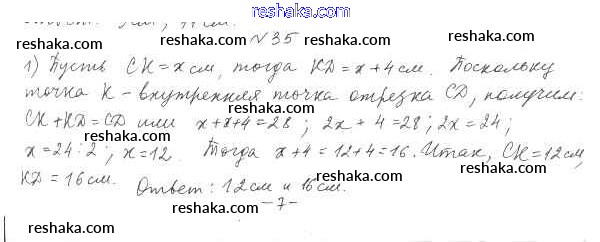 reshaka.com
reshaka.com
№35
reshaka.com
reshaka.com
1) Пусть СК = х см, тогда KD = х + 4 см. Поскольку
точка К - внутренняя точка отрезка CD, получим:
СК + KD = CD или х + х + 4 = 28; 2х + 4 = 28; 2х = 24;
reshaka.com reshaka.com reshaka.com
х = 24 : 2; х = 12. Тогда х + 4 = 12 + 4 = 16. Итак, СК = 12 см,
reshaka.com reshaka.com reshaka.com
KD = 16 см. Ответ: 12 см и 16 см.
reshaka.com reshaka.com
-7-
reshaka.com reshaka.com